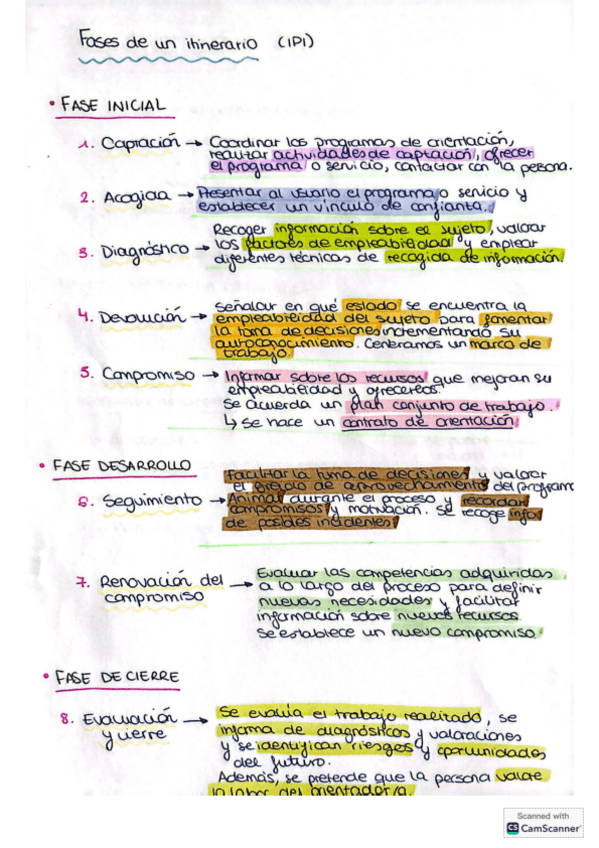 Fases de un itinerario (IPI)
• FASE INICIAL
1. Captación → Coordinar los programas de orientación,
realizar actividades de captación, ofrecer
el programa o servicio, contactar con la persona.
2. Acogida → Presentar al usuario el programa o servicio y
establecer un vínculo de confianza.
3. Diagnóstico → Recoger información sobre el sujeto, valorar
los factores de empleabilidad y emplear
diferentes técnicas de recogida de información.
4. Devolución → Señalar en qué estado se encuentra la
empleabilidad del sujeto para fomentar
la toma de decisiones incrementando su
autoconocimiento. Generamos un marco de
trabajo.
5. Compromiso → Informar sobre los recursos que mejoran su
empleabilidad y ofrecerlos.
Se acuerda un plan conjunto de trabajo.
↳ Se hace un contrato de orientación.
• FASE DESARROLLO
6. Seguimiento → Facilitar la toma de decisiones y valorar
el grado de aprovechamiento del program
Animar durante el proceso y recordar
compromisos y motivación. Se recoge info
de posibles incidentes
7. Renovación del compromiso → Evaluar las competencias adquiridas
a lo largo del proceso para definir
nuevas necesidades y facilitar
información sobre nuevos recursos.
Se establece un nuevo compromiso.
• FASE DE CIERRE
8. Evaluación y cierre → Se evalúa el trabajo realizado, se
informa de diagnósticos y valoraciones
y se identifican riesgos y oportunidades
del futuro.
Además, se pretende que la persona valore
la labor del orientador/a.
Scanned with
CS CamScanner